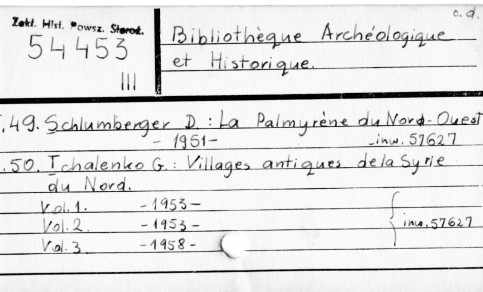 c.d.
Zakł. Hist. Powsz. Staroż.
54453
III
Bibliothèque Archéologique
et Historique.
.49. Schlumberger D.: La Palmyrène du Nord-Ouest
- 1951 - inw. 57627
.50. Tchalenko G.: Villages antiques de la Syrie
du Nord.
Vol. 1. - 1953 -
Vol. 2 - 1953 -
inw. 57627
Vol. 3 - 1958 -